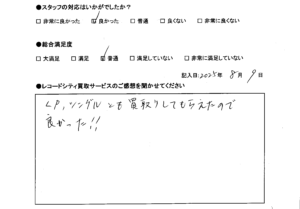 ●スタッフの対応はいかがでしたか?
□ 非常に良かった ☑ 良かった □ 普通 □ 良くない □ 非常に良くない
●総合満足度
□ 大満足 □ 満足 ☑ 普通 □ 満足していない □ 非常に満足していない
記入日:2025年 8月 9日
●レコードシティ買取サービスのご感想を聞かせてください
LP,シングルとも買取りしてもらえたので
良かった!!